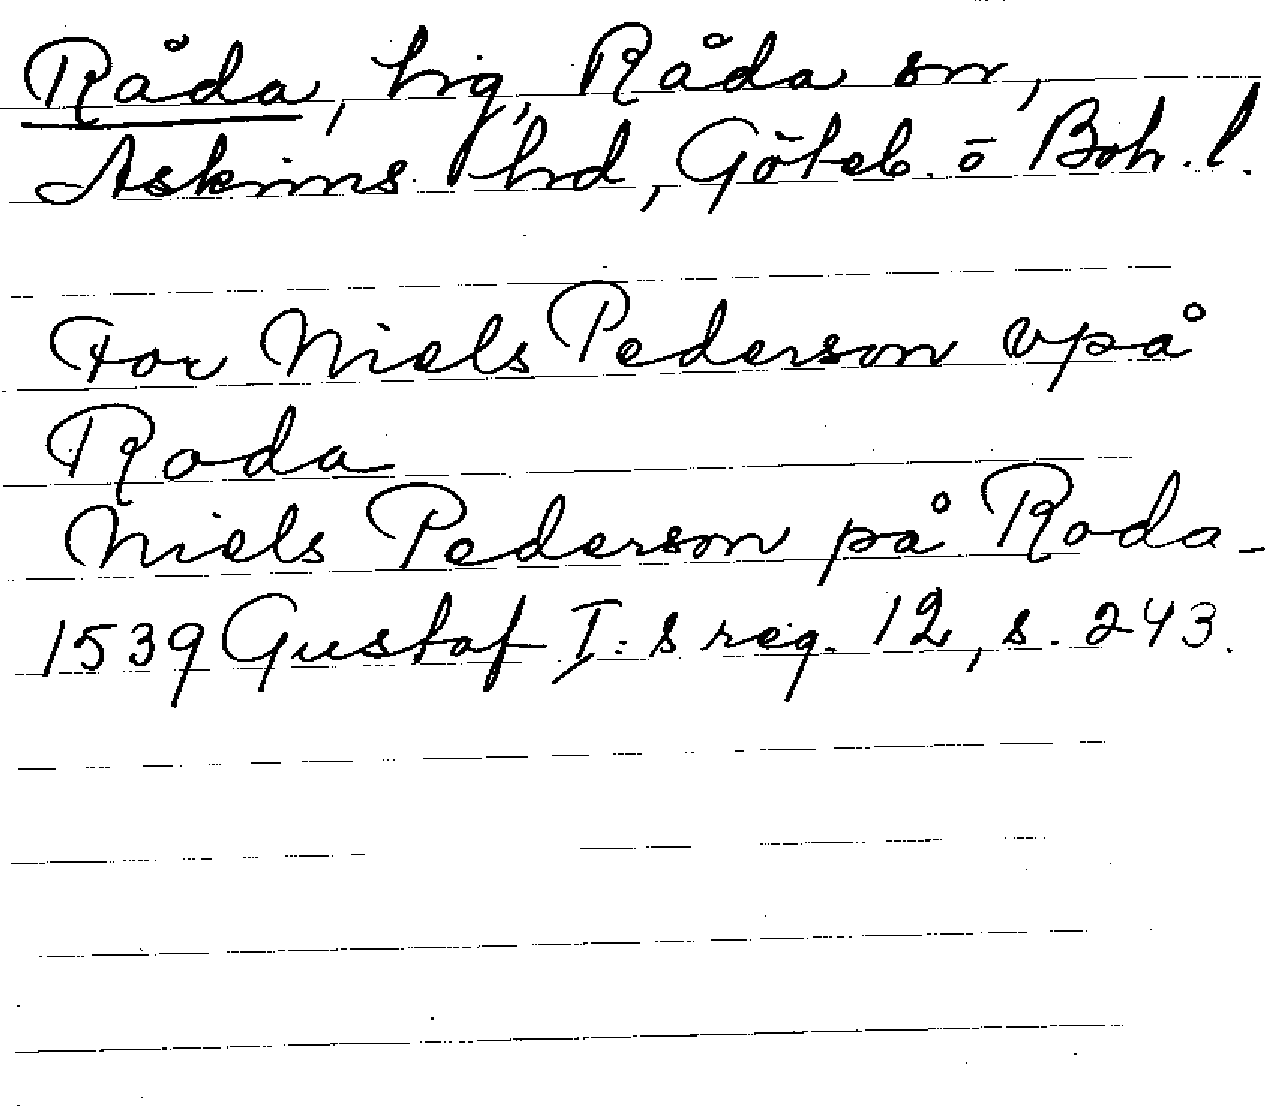 Råda, hg, Råda sn,
Askims hd, Göteb. o Boh. l.
For Niels Pederson vpå
Roda
Niels Pederson på Roda -
1539 Gustaf I:s reg. 12, s. 243.